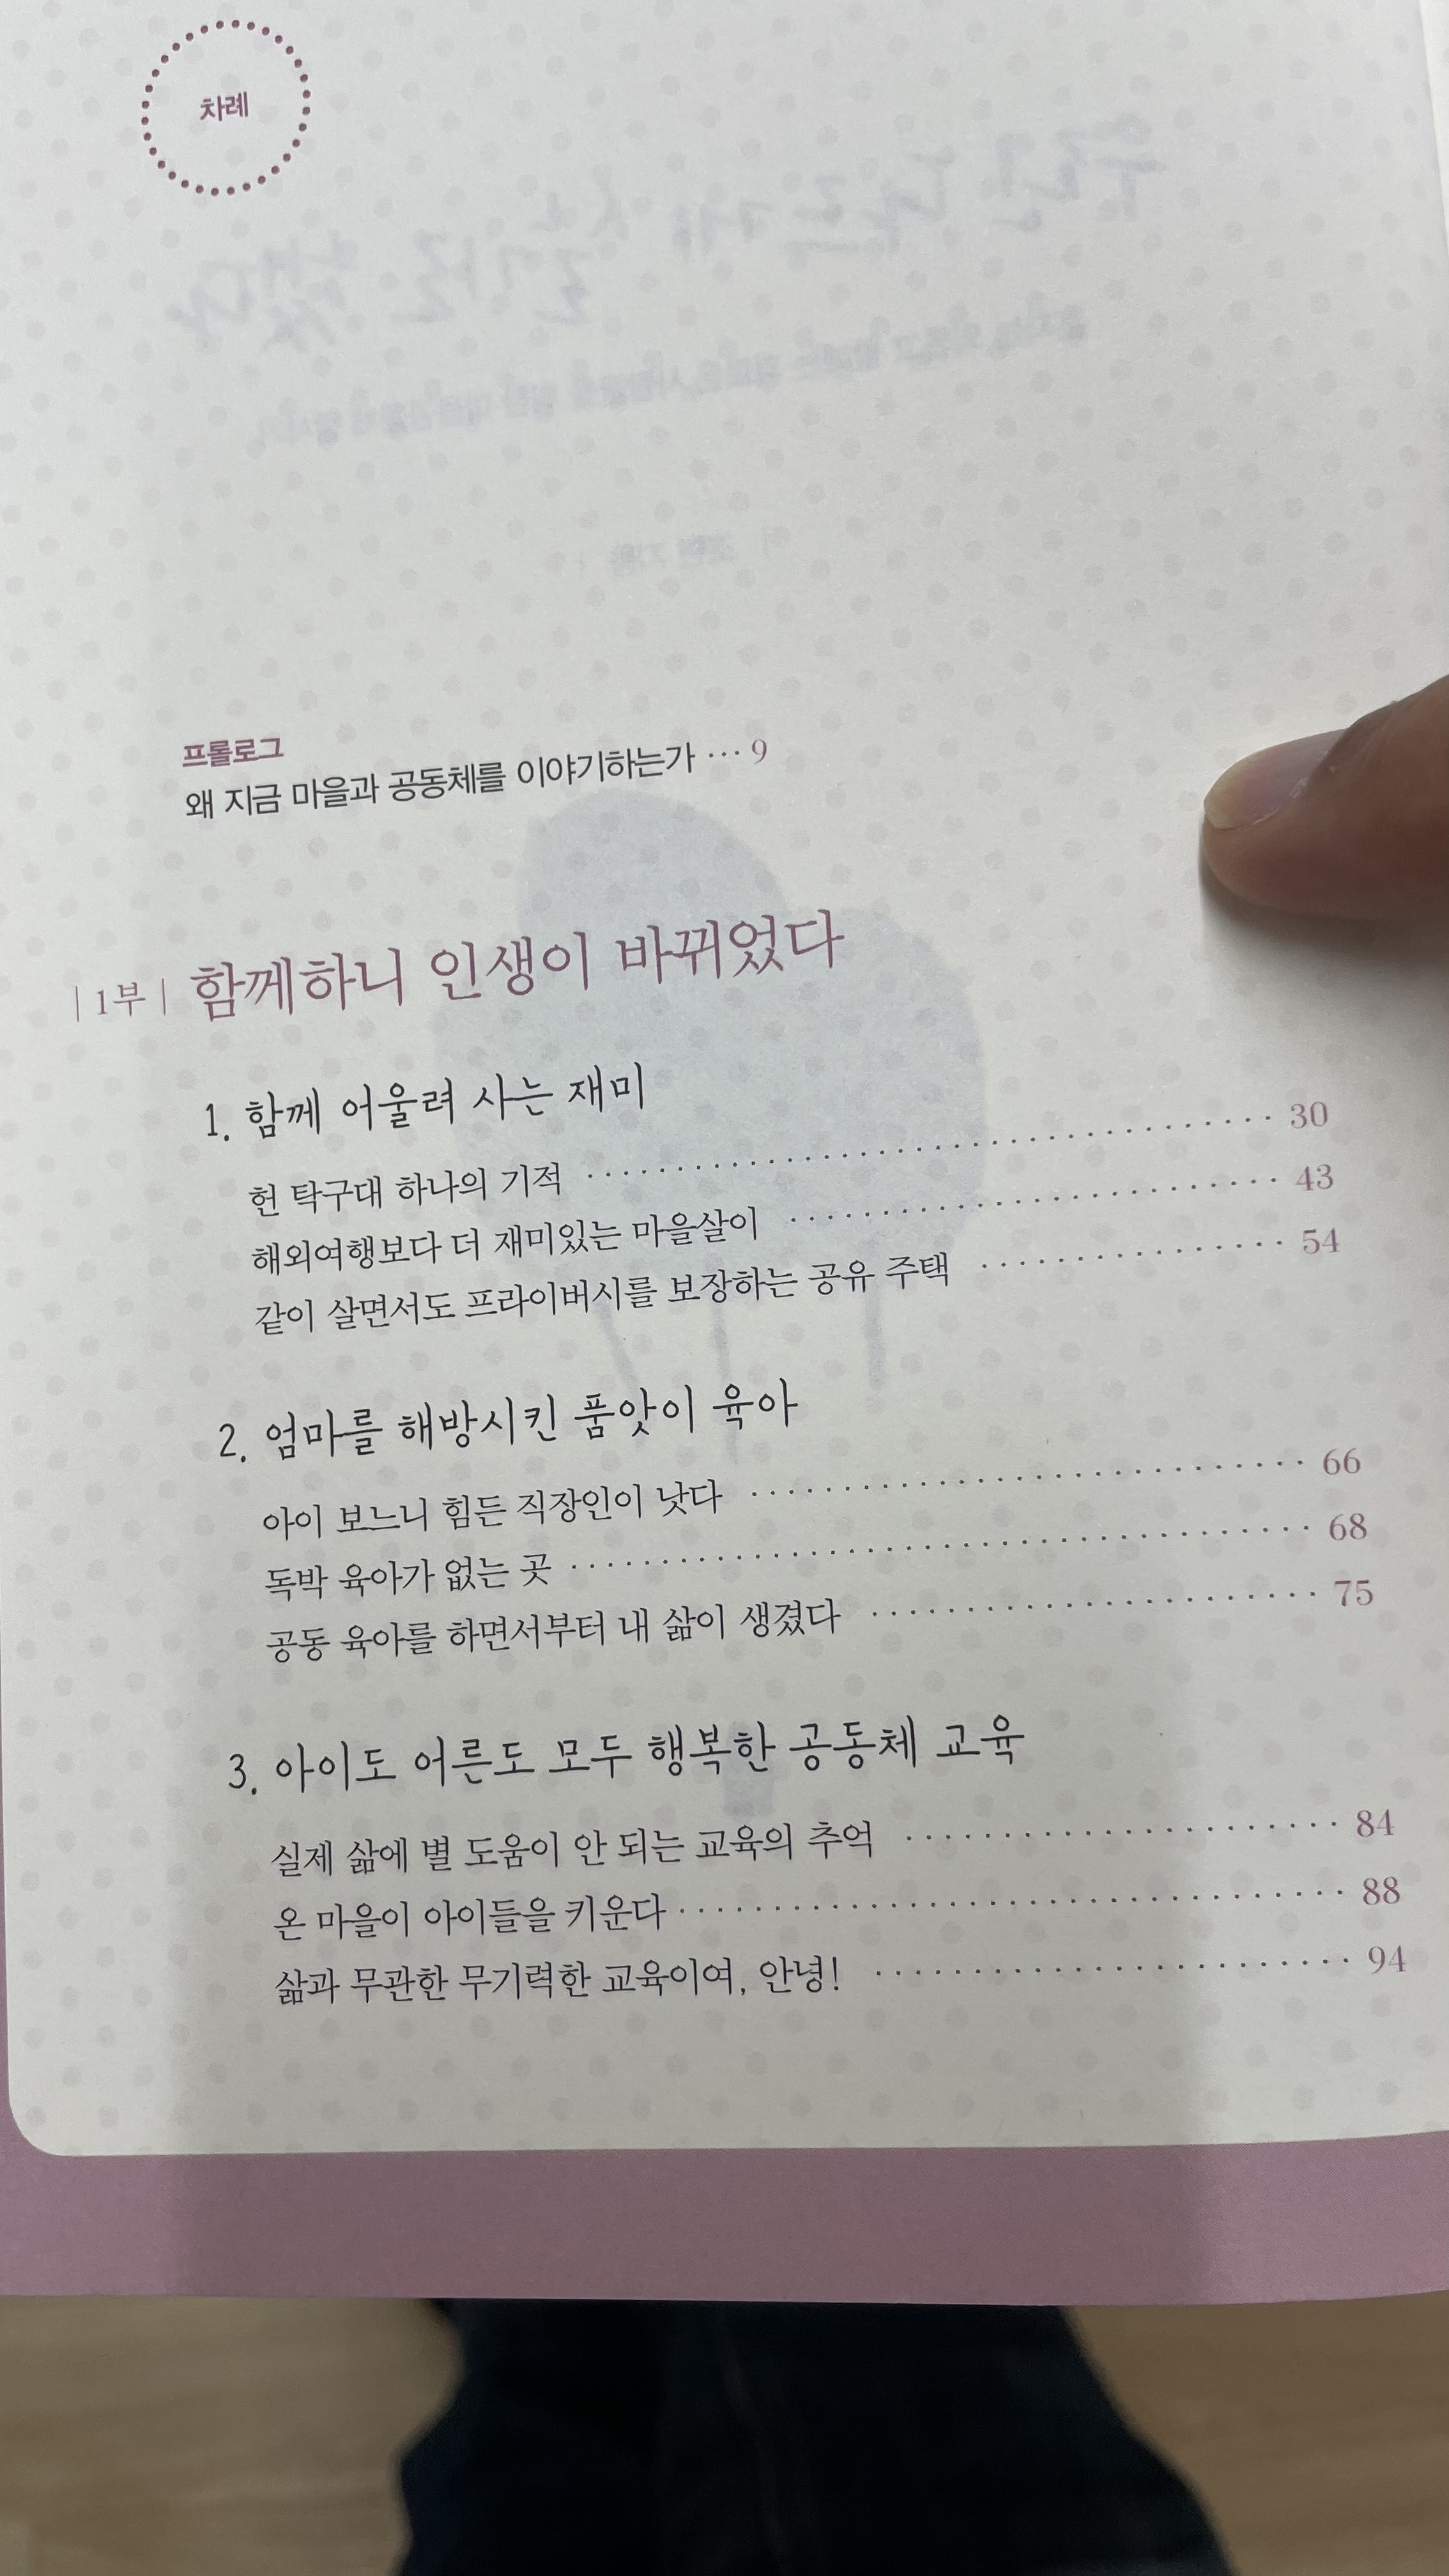 차례
프롤로그
왜 지금 마을과 공동체를 이야기하는가 ··· 9
| 1부 | 함께하니 인생이 바뀌었다
1. 함께 어울려 사는 재미
헌 탁구대 하나의 기적 ·································· 30
해외여행보다 더 재미있는 마을살이 ························ 43
같이 살면서도 프라이버시를 보장하는 공유 주택 ·············· 54
2. 엄마를 해방시킨 품앗이 육아
아이 보느니 힘든 직장인이 낫다 ··························· 66
독박 육아가 없는 곳 ···································· 68
공동 육아를 하면서부터 내 삶이 생겼다 ····················· 75
3. 아이도 어른도 모두 행복한 공동체 교육
실제 삶에 별 도움이 안 되는 교육의 추억 ··················· 84
온 마을이 아이들을 키운다 ······························· 88
삶과 무관한 무기력한 교육이여, 안녕! ······················ 94